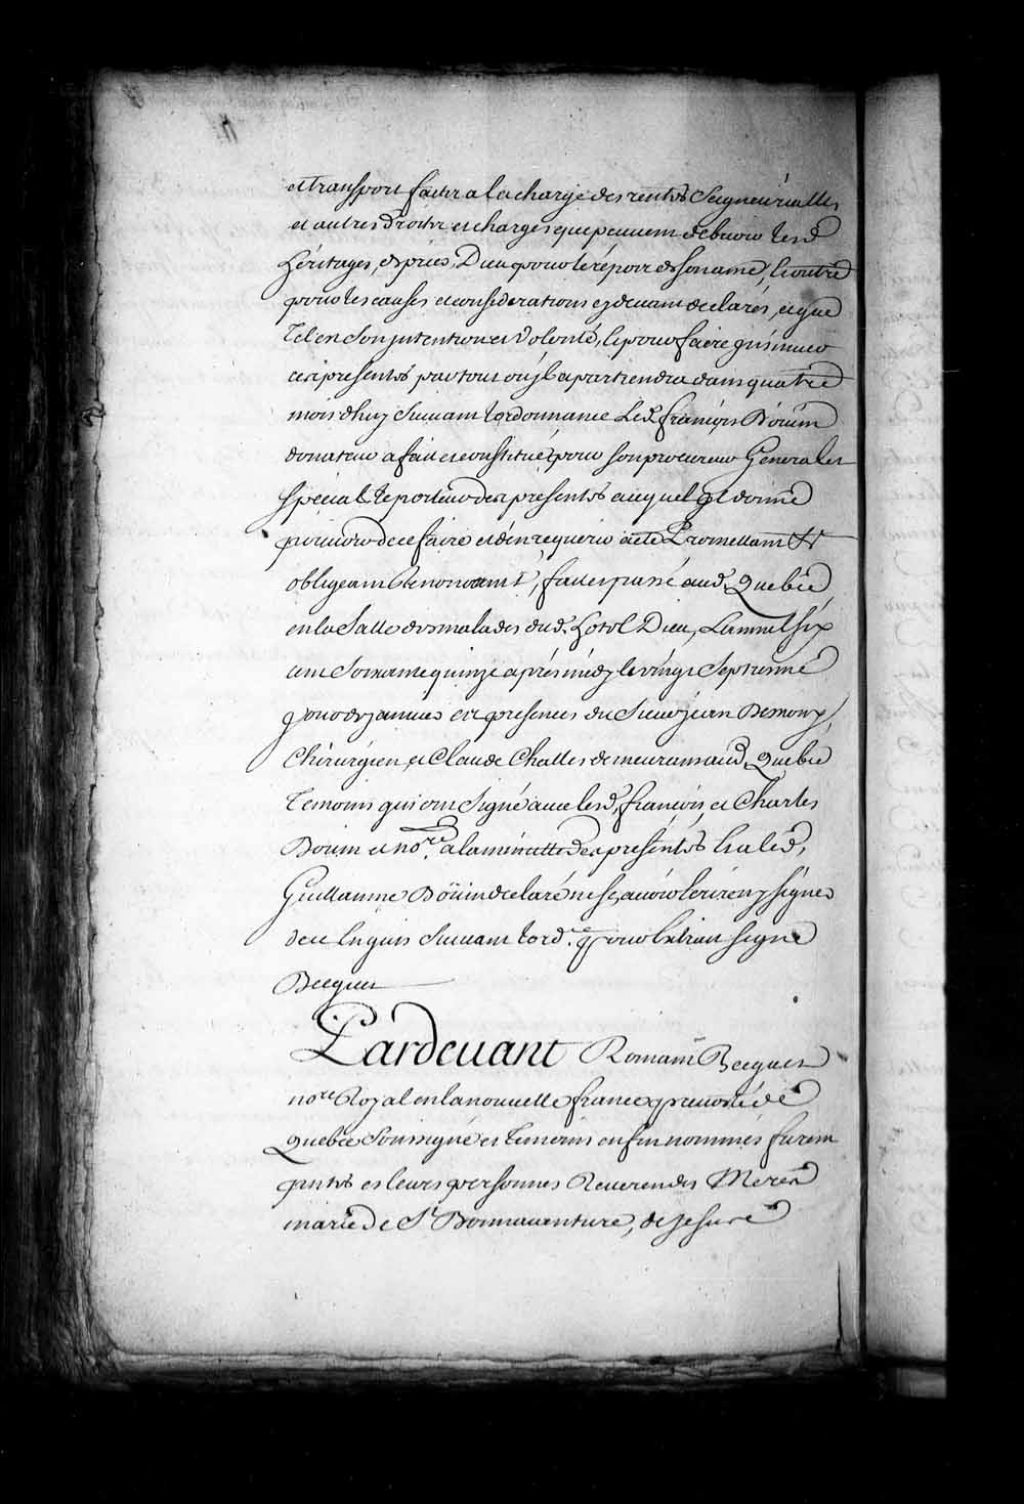 et transport faitz a la charge des rentes Seigneurialles
et autres droitz et charges que peuuent debuoir lesd
heritages, et prier Dieu pour le repos de son ame, Et outre
pour les causes et considerations cy deuant declarés, et que
tel est son jntention et Volonté, Et pour faire jnsinuer
ces presentes par tout ou jl apartiendra dans quatre
mois d'huy Suiuant l'ordonnance Led. françois Boüin
donateur a fait et constitué pour son procureur General et
special le porteur des presentes auquel jl donne
pouuoir de ce faire et d'en requerir acte Promettant &
obligeant Renonceant &, fait et passé aud. Quebec
en la Salle des malades dud. hotel Dieu, L'an mil six
cent Soixante quinze aprés midy le vingt Septieme
jour de januier en presences du Sieur jean Demony
Chirurgien et Claude Challes demeurans aud. Quebec
Temoins qui ont Signé auec lesd. françois et Charles
Boüin et nore. a la minutte des presentes Et a led.
Guillaume Boüin declaré ne sçauoir Ecrire ny signer
de ce Enquis Suiuant l'ord.ce pour Extrait signé
Becquet
Pardeuant Romain Becquet
nore Royal en la nouuelle france preuosté de
Quebec Soussigné et Temoins en fin nommés furent
pntes en leurs personnes Reuerendes Meres
marie de St. Bonnauenture, de jesus